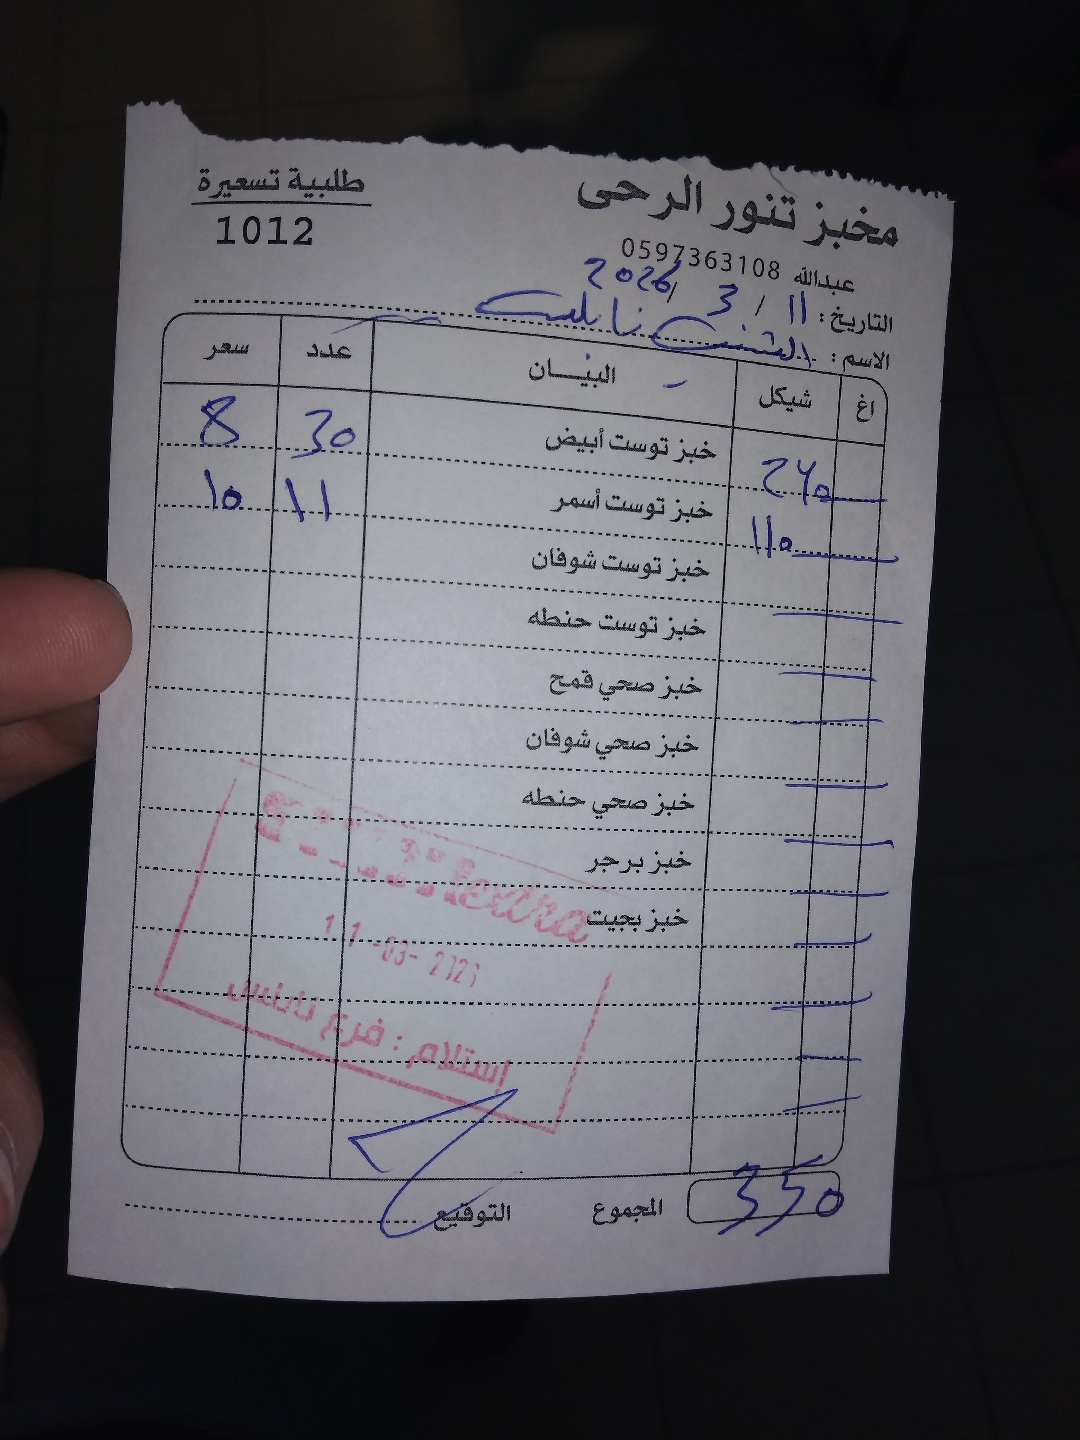 مخبز تنور الرحى
طلبية تسعيرة
1012
عبدالله 0597363108
التاريخ : 11 / 3 / 2026
الاسم : نابلس
اغ شيكل البيـــان عدد سعر
240 خبز توست أبيض 30 8
110 خبز توست أسمر 11 10
خبز توست شوفان
خبز توست حنطه
خبز صحي قمح
خبز صحي شوفان
خبز صحي حنطه
خبز برجر
خبز بجيت
extra
11 -03-
إستلام : فرع نابلس
350 المجموع التوقيع